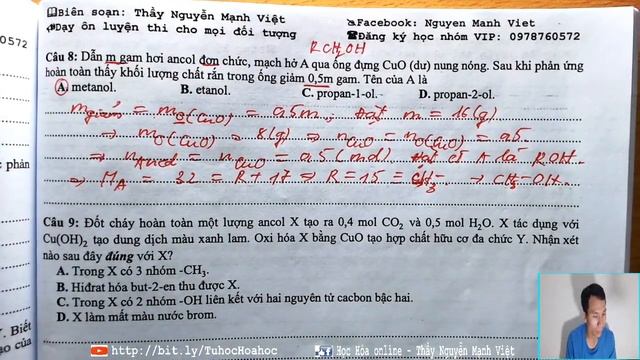 Biên soạn: Thầy Nguyễn Mạnh Việt
Facebook: Nguyen Manh Viet
Dạy ôn luyện thi cho mọi đối tượng
Đăng ký học nhóm VIP: 0978760572
0572
RCH2OH
Câu 8: Dẫn m gam hơi ancol đơn chức, mạch hở A qua ống đựng CuO (dư) nung nóng. Sau khi phản ứng
hoàn toàn thấy khối lượng chất rắn trong ống giảm 0,5m gam. Tên của A là
A. metanol. B. etanol. C. propan-1-ol. D. propan-2-ol.
m giảm = mO(CuO) = 0,5m, Đặt m = 16(g)
⇒ mO(CuO) = 8(g) ⇒ nCuO = nO(CuO) = 0,5
⇒ nAncol = nCuO = 0,5 (mol) Đặt ct A là ROH
⇒ MA = 32 = R + 17 ⇒ R = 15 ≡ CH3- → CH3-OH
phản
Câu 9: Đốt cháy hoàn toàn một lượng ancol X tạo ra 0,4 mol CO2 và 0,5 mol H2O. X tác dụng với
Cu(OH)2 tạo dung dịch màu xanh lam. Oxi hóa X bằng CuO tạo hợp chất hữu cơ đa chức Y. Nhận xét
nào sau đây đúng với X?
A. Trong X có 3 nhóm -CH3.
B. Hiđrat hóa but-2-en thu được X.
C. Trong X có 2 nhóm -OH liên kết với hai nguyên tử cacbon bậc hai.
D. X làm mất màu nước brom.
Biết
ạo của
http://bit.ly/TuhocHoahoc
Học Hóa online - Thầy Nguyễn Mạnh Việt